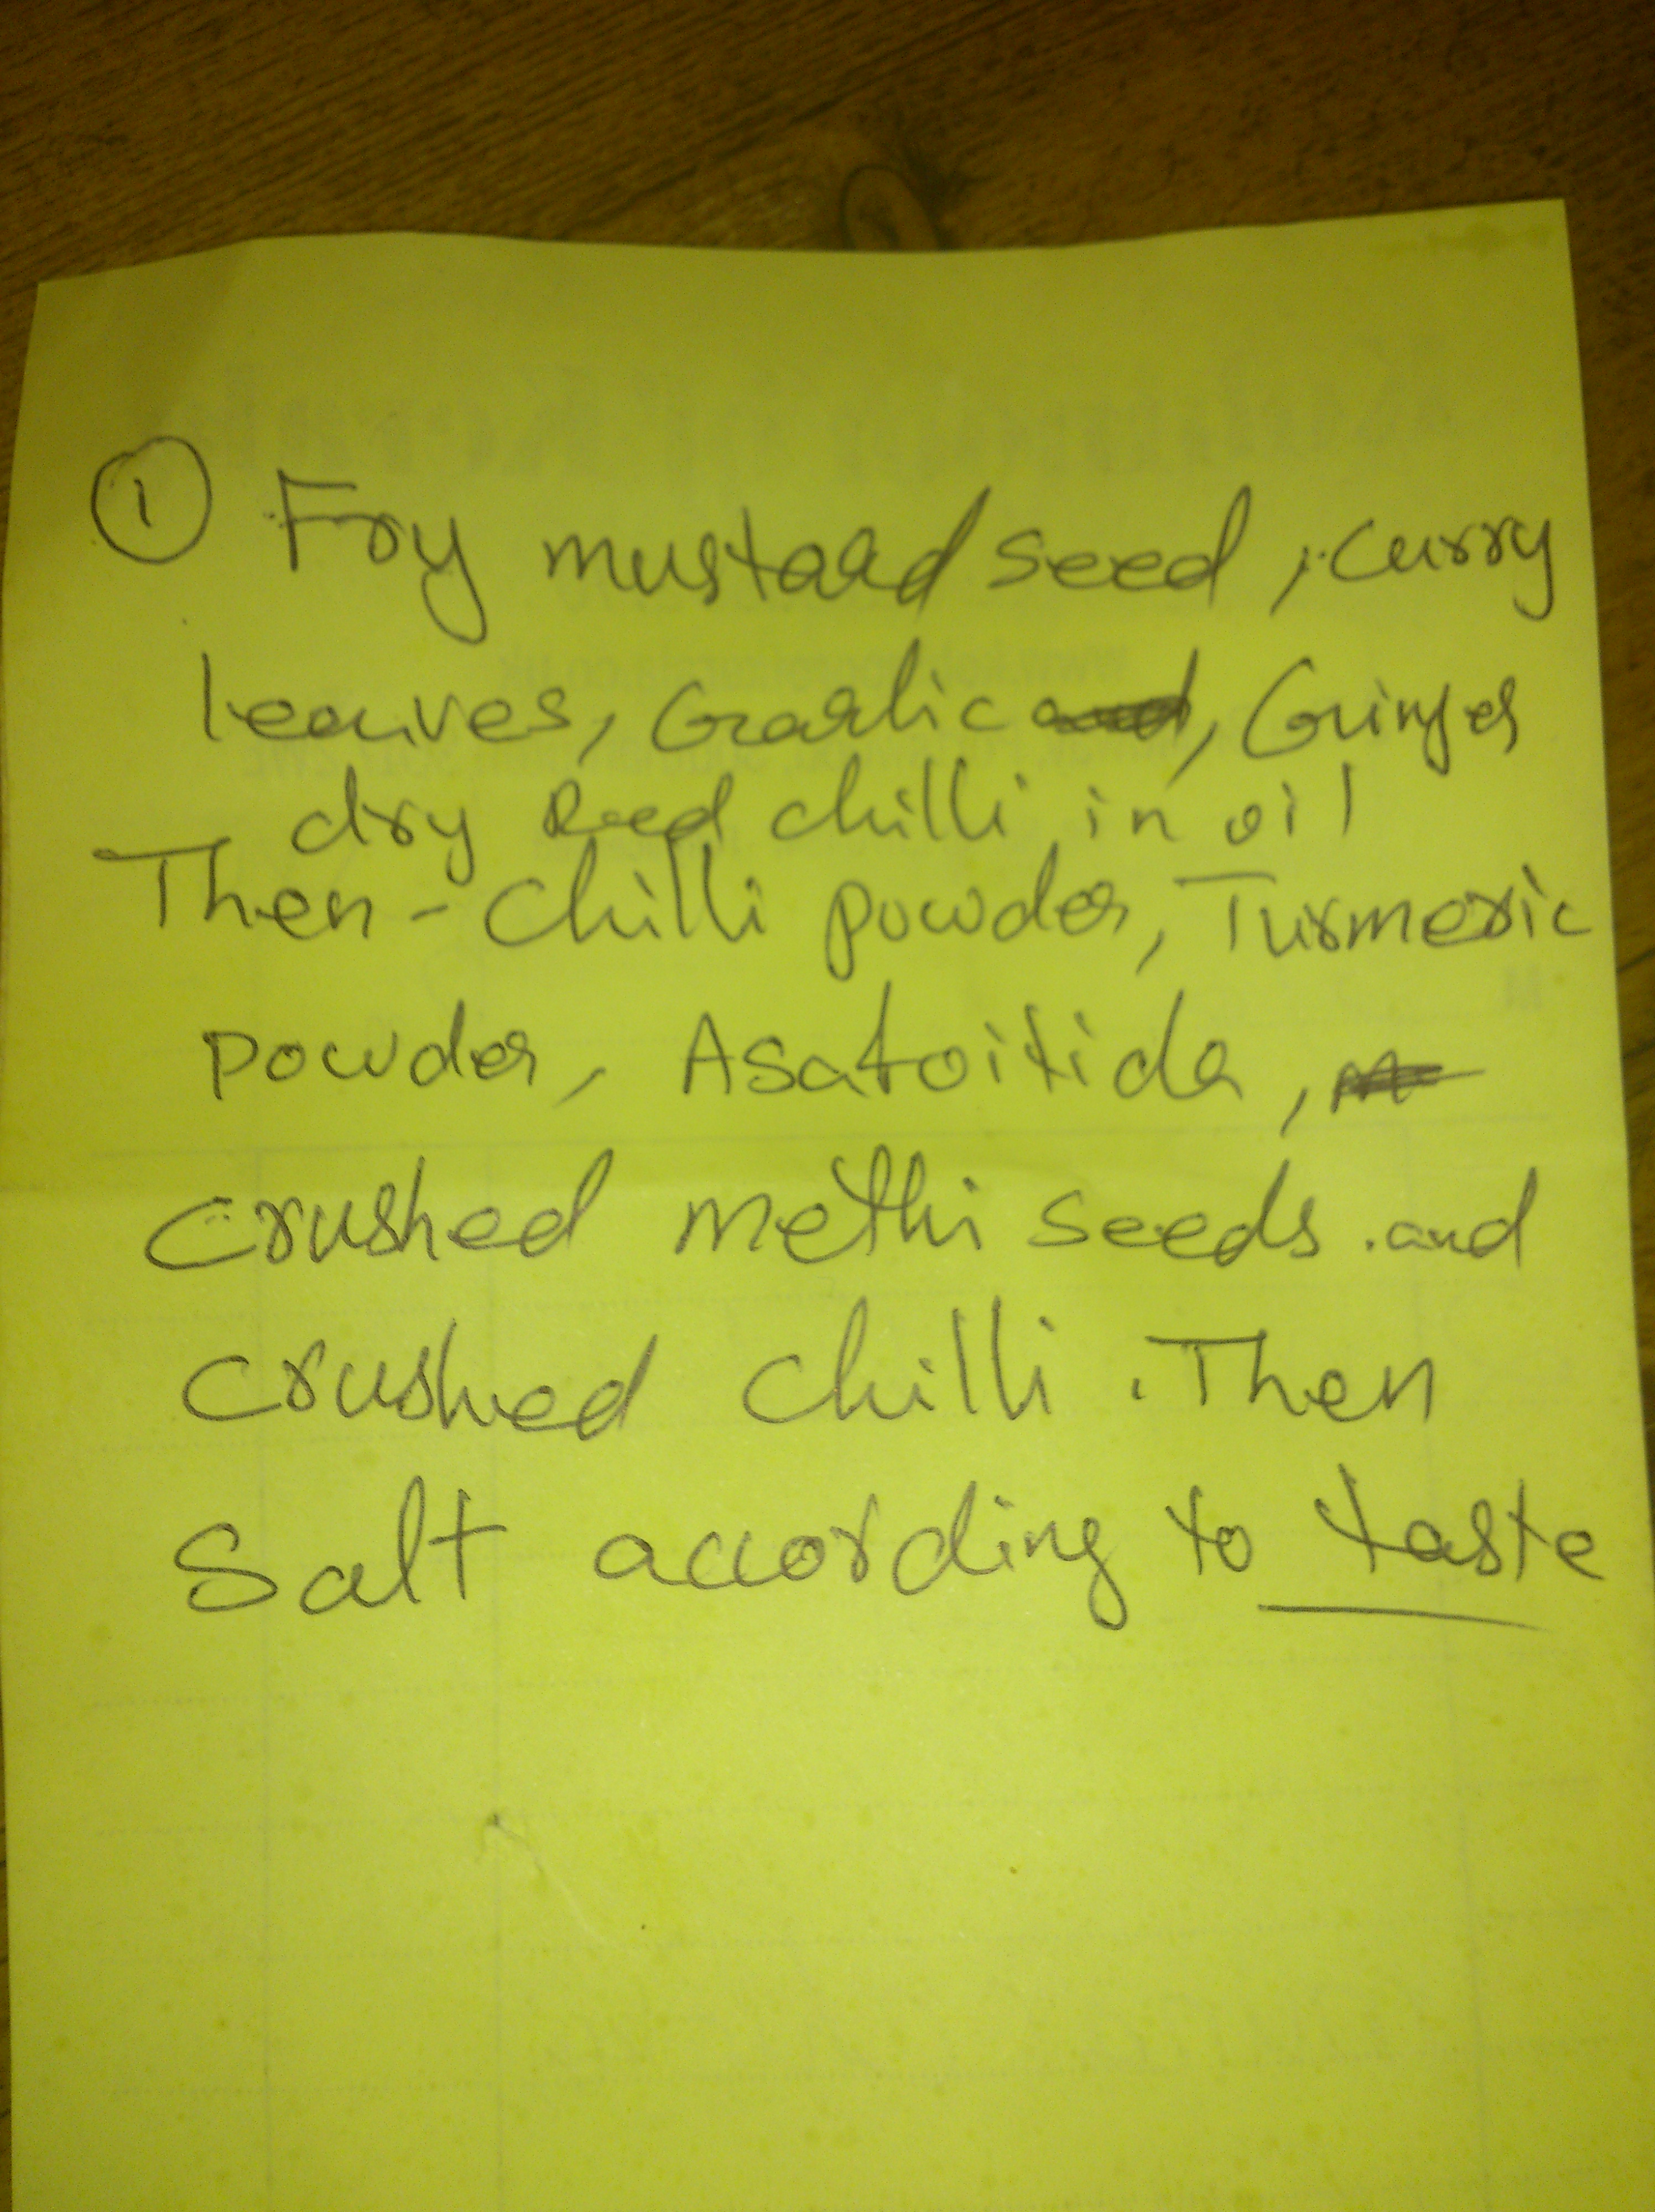 ① Fry mustard seed, curry
leaves, Garlic, Ginger
dry Red chilli in oil
Then - Chilli powder, Turmeric
powder, Asafoitida,
crushed methi seeds and
crushed chilli. Then
Salt according to taste